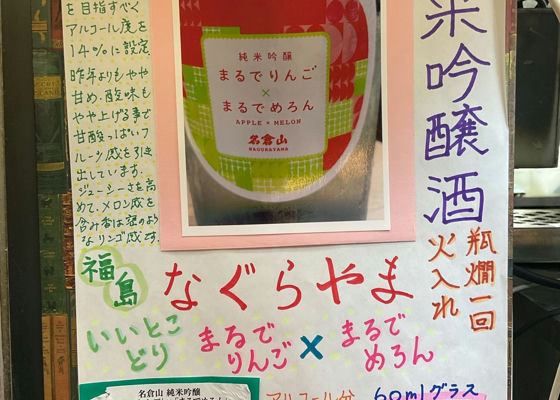 を目指すべく
アルコール度を
14%に設定
昨年よりもやや
甘め、酸味も
やや上げる事で
甘酸っぱいフ
ルーツ感を引き
出しています。
ジューシーさを高
めて、メロン感を
含み香は蜜のよう
なリンゴ感です。
純米吟醸
まるでりんご
×
まるでめろん
APPLE × MELON
名倉山
NAGURAYAMA
米吟醸酒
瓶燗一回
火入れ
福島
なぐらやま
いいとこ
どり
まるで
りんご
×
まるで
めろん
名倉山 純米吟醸
アルコール分
60mlグラス